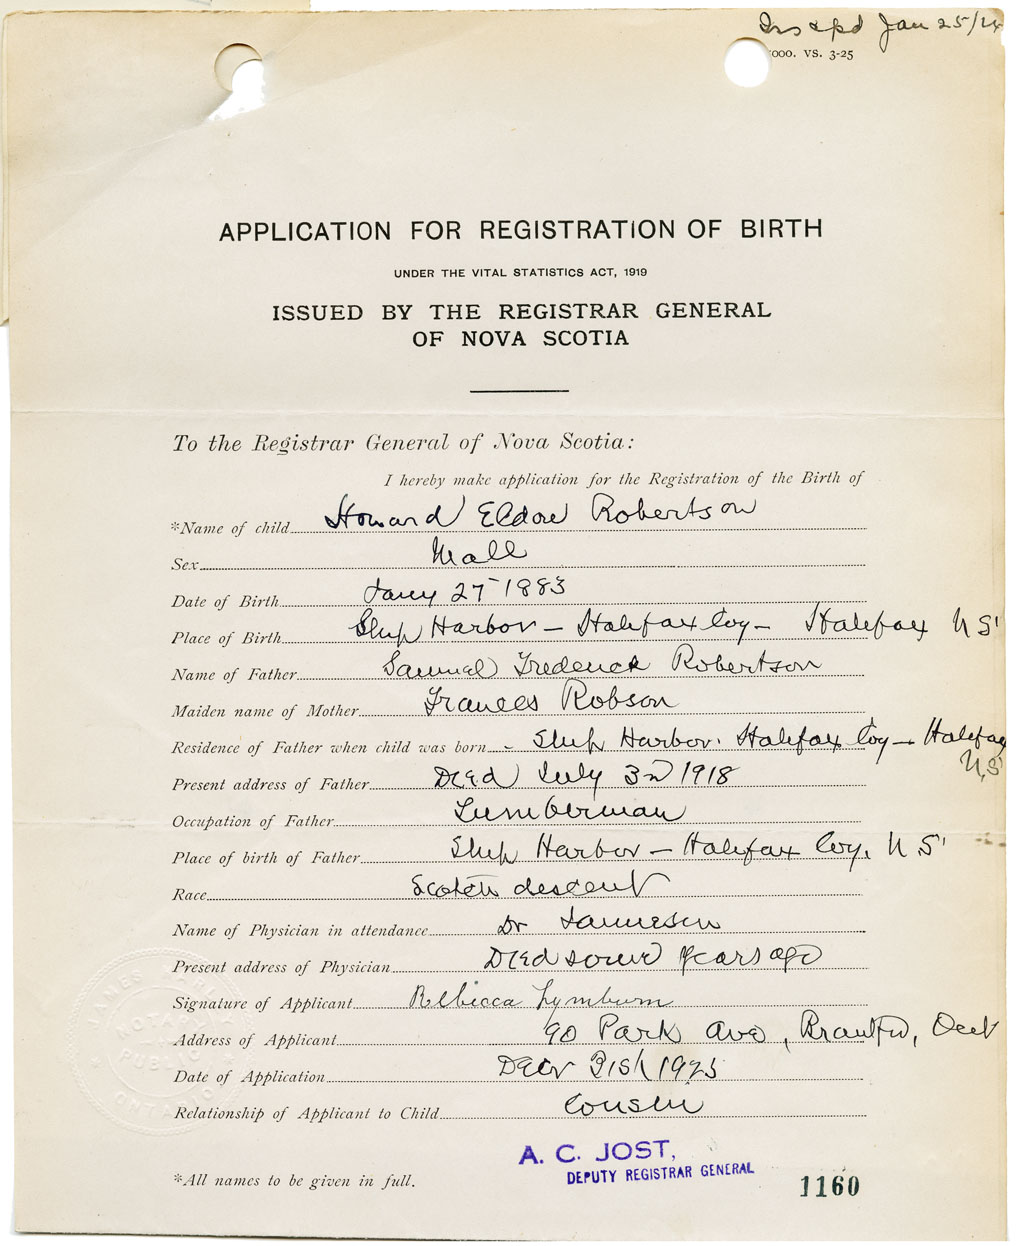 Jan 25/
000. VS. 3-25
APPLICATION FOR REGISTRATION OF BIRTH
UNDER THE VITAL STATISTICS ACT, 1919
ISSUED BY THE REGISTRAR GENERAL
OF NOVA SCOTIA
To the Registrar General of Nova Scotia:
I hereby make application for the Registration of the Birth of
*Name of child Howard Eldon Robertson
Sex Male
Date of Birth Jany 27 1883
Place of Birth Ship Harbor - Halifax Coy - Halifax N S
Name of Father Samuel Frederick Robertson
Maiden name of Mother Frances Robson
Residence of Father when child was born - Ship Harbor. Halifax Coy - Halifax
N,S
Present address of Father Died July 3rd 1918
Occupation of Father Lumberman
Place of birth of Father Ship Harbor - Halifax Coy. N.S
Race Scotch descent
Name of Physician in attendance Dr Jamieson
Present address of Physician Died some years ago
Signature of Applicant Rebecca Lymburn
Address of Applicant 90 Park Ave, Brantfd, Ont
Date of Application Decr 31st 1925
Relationship of Applicant to Child Cousin
JAMES
NOTARY
PUBLIC
ONTARIO
A. C. JOST,
DEPUTY REGISTRAR GENERAL
*All names to be given in full.
1160